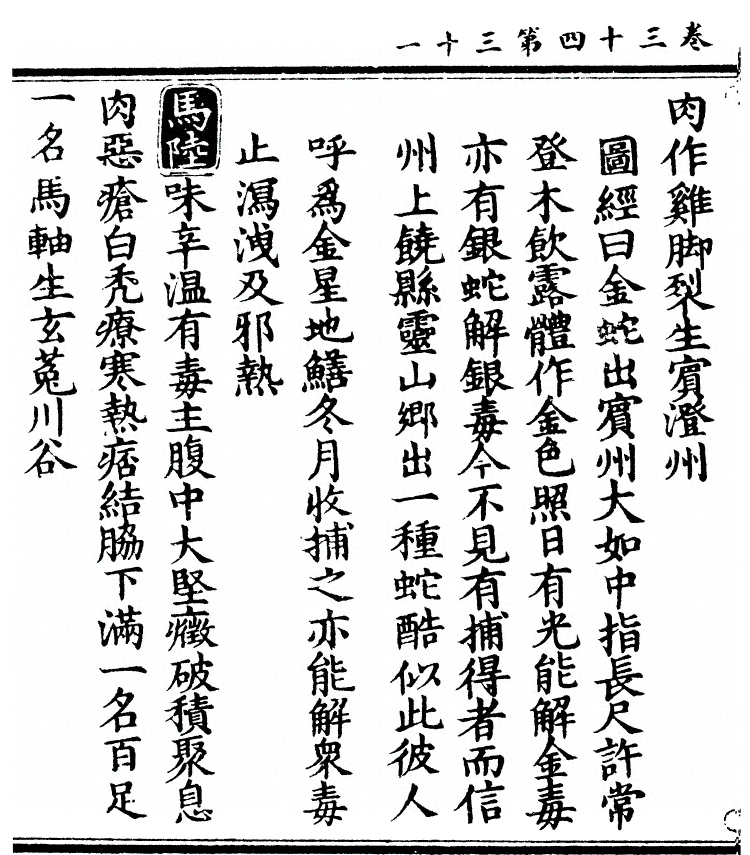 卷三十四第三十一
肉作雞脚裂生賓澄州
圖經曰金蛇出賓州大如中指長尺許常
登木飲露體作金色照日有光能解金毒
亦有銀蛇解銀毒今不見有捕得者而信
州上饒縣靈山鄉出一種蛇酷似此彼人
呼爲金星地鱔冬月收捕之亦能解衆毒
止瀉洩及邪熱
馬陸味辛溫有毒主腹中大堅癥破積聚息
肉惡瘡白秃療寒熱痞結脇下滿一名百足
一名馬軸生玄菟川谷